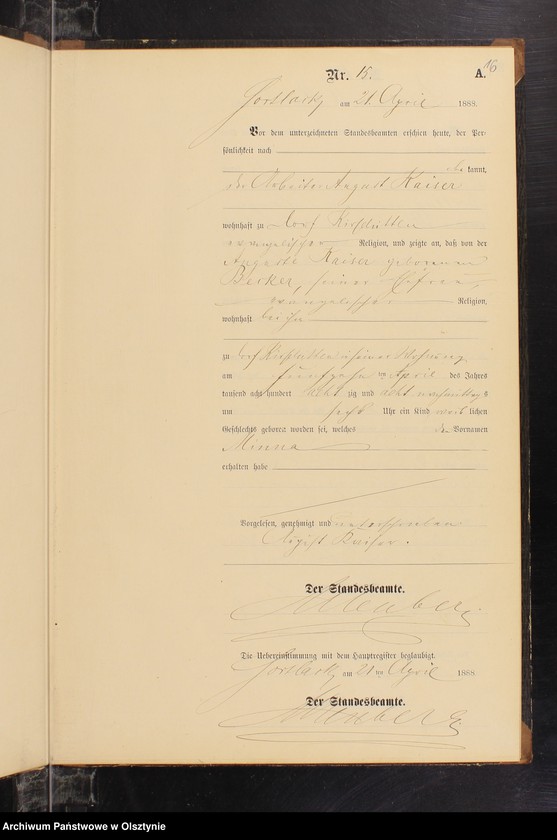 16
Nr. 15. A.
am 21 April 1888.
Vor dem unterzeichneten Standesbeamten erschien heute, der Per-
sönlichkeit nach
kannt,
der Arbeiter August Kaiser
wohnhaft zu Dorf
evangelischer Religion, und zeigte an, daß von der
Auguste Kaiser geborenen
Becker, seiner Ehefrau,
evangelischer Religion,
wohnhaft bei ihm
zu Dorf in seiner Wohnung
am fünfzehnten April des Jahres
tausend acht hundert acht zig und acht nachmittags
um sechs Uhr ein Kind weib lichen
Geschlechts geboren worden sei, welches den Vornamen
Minna
erhalten habe
Vorgelesen, genehmigt und unterschrieben
August Kaiser.
Der Standesbeamte.
Die Uebereinstimmung mit dem Hauptregister beglaubigt.
am 21 ten April 1888
Der Standesbeamte.
Archiwum Państwowe w Olsztynie